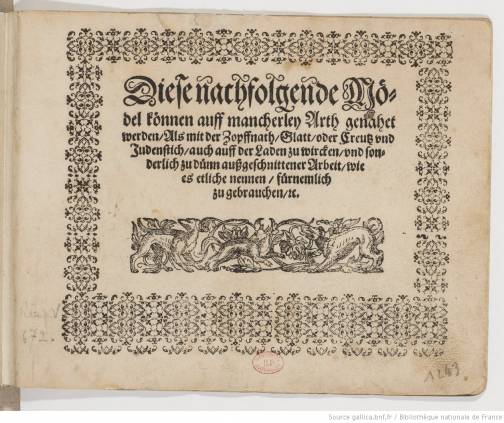 Diese nachfolgende Mö-
del können auff mancherley Arth genähet
werden/Als mit der Zopffnath/Glatt/oder Creutz vnd
Judenstich/auch auff der Laden zu wircken/vnd son-
derlich zu dünn außgeschnittener Arbeit/wie
es etliche nennen/fürnemlich
zu gebrauchen/ꝛc.
672.
1263
Source gallica.bnf.fr / Bibliothèque nationale de France